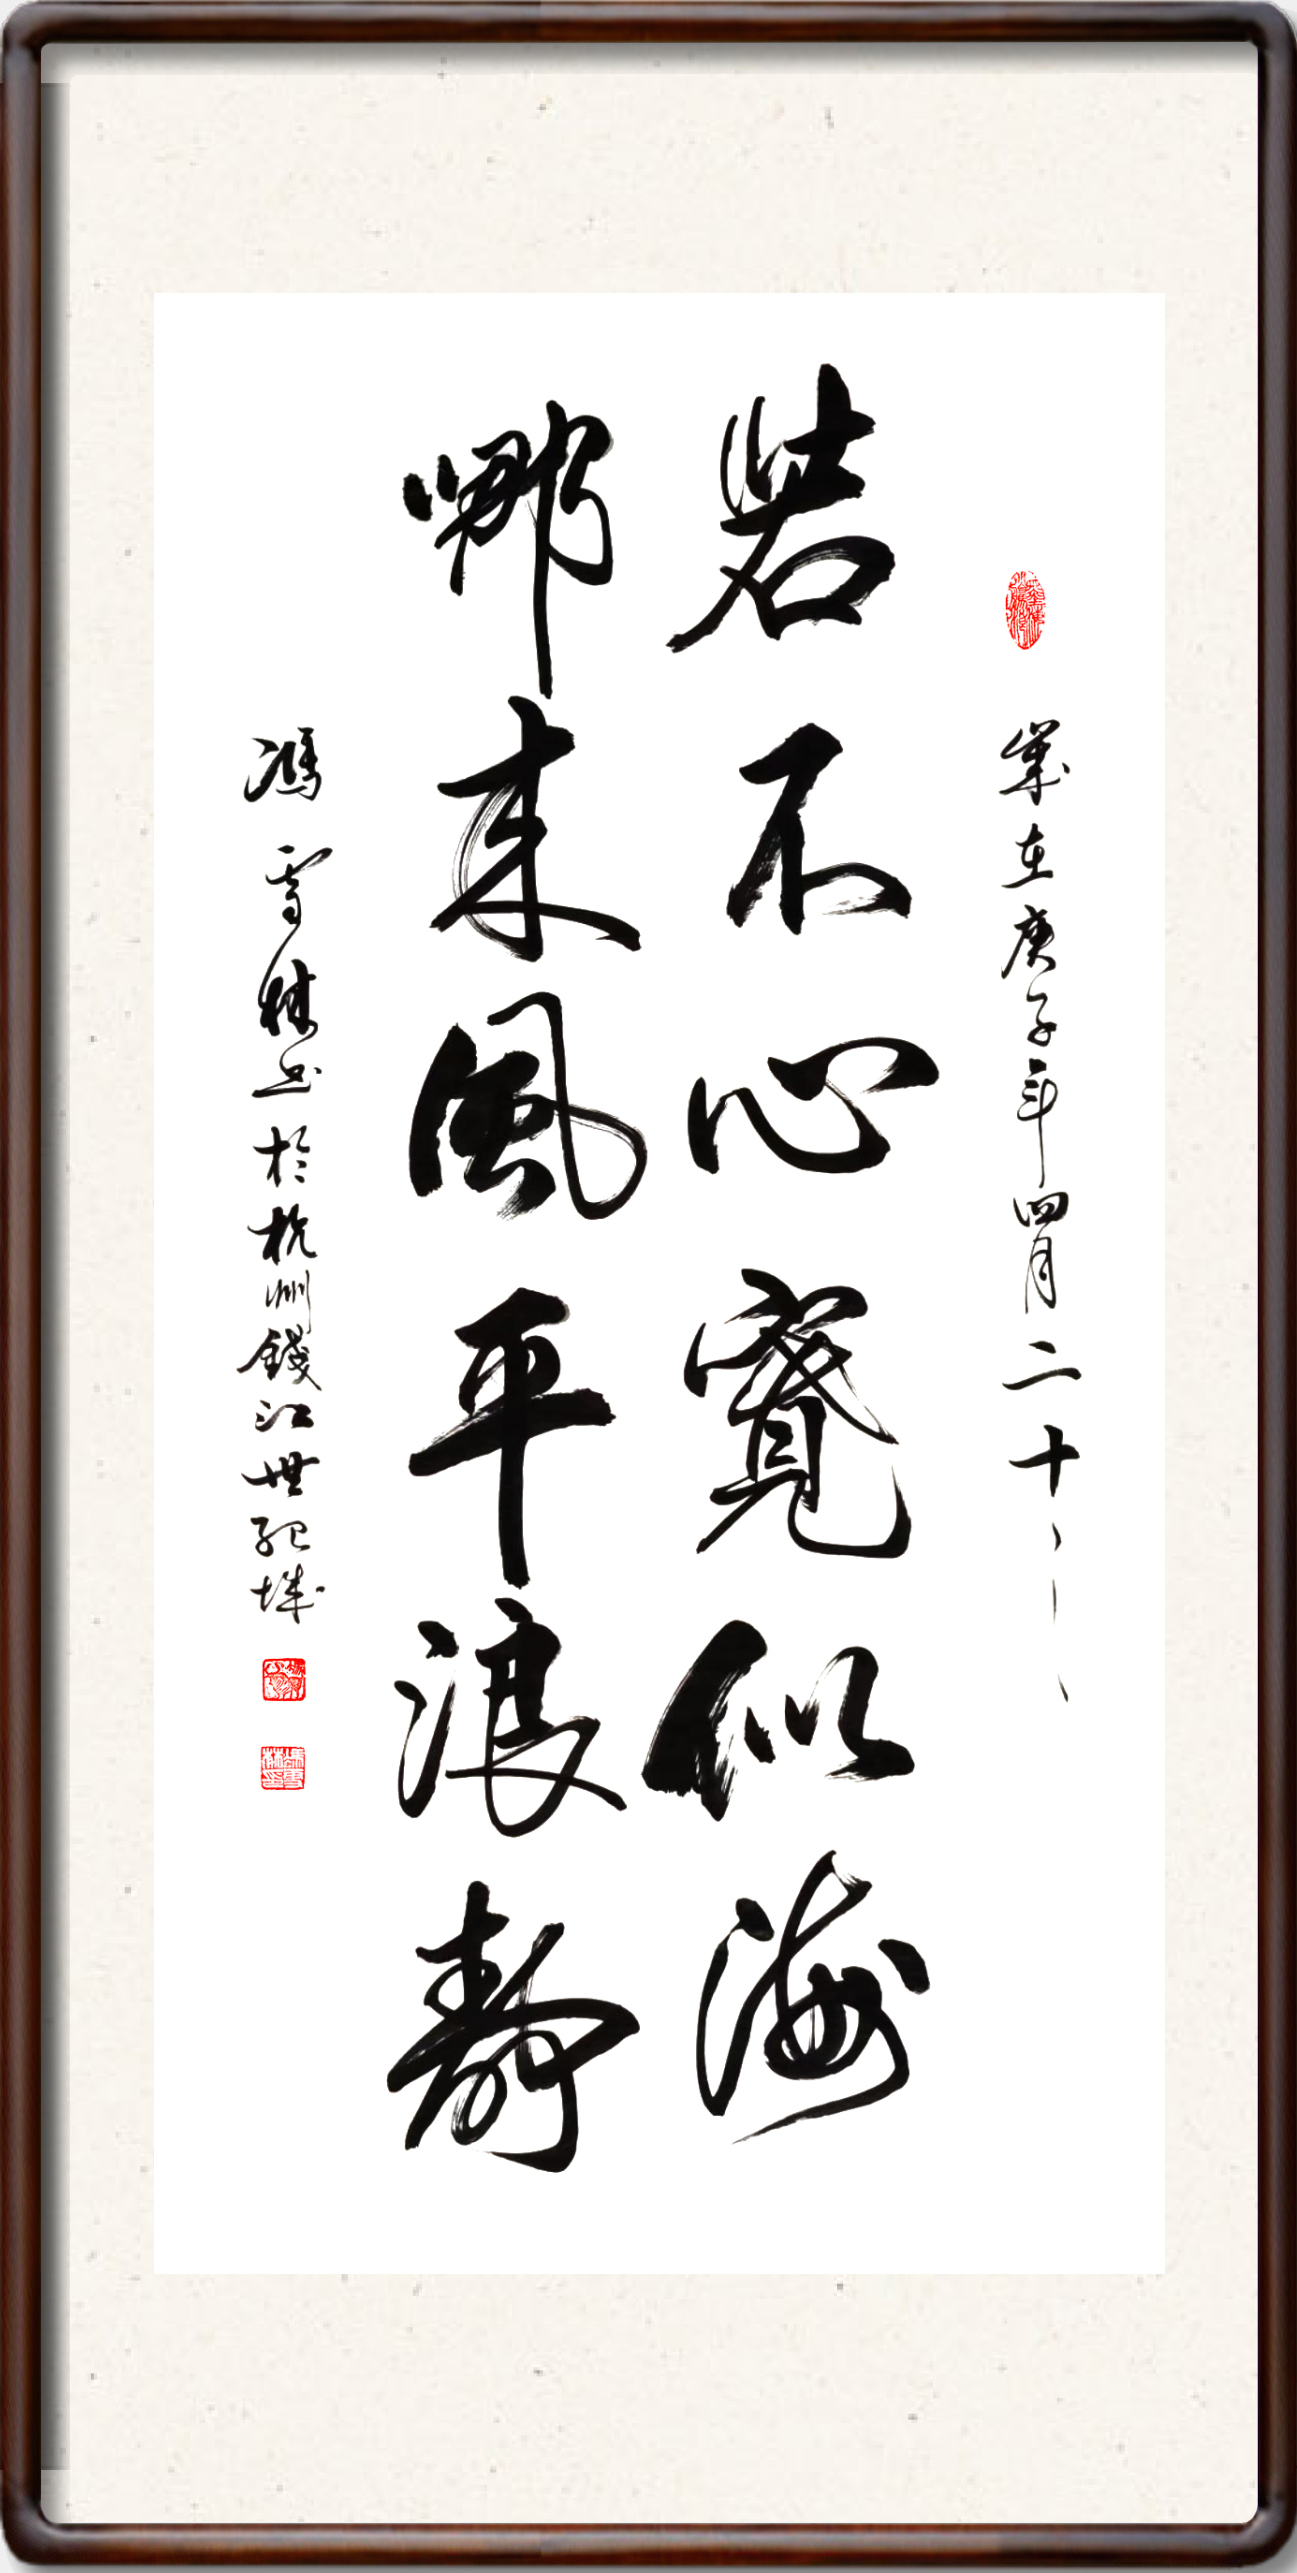 歲在庚子年四月二十八日
若不心寬似海
哪来風平浪靜
馮雪林书於杭州錢江世紀城